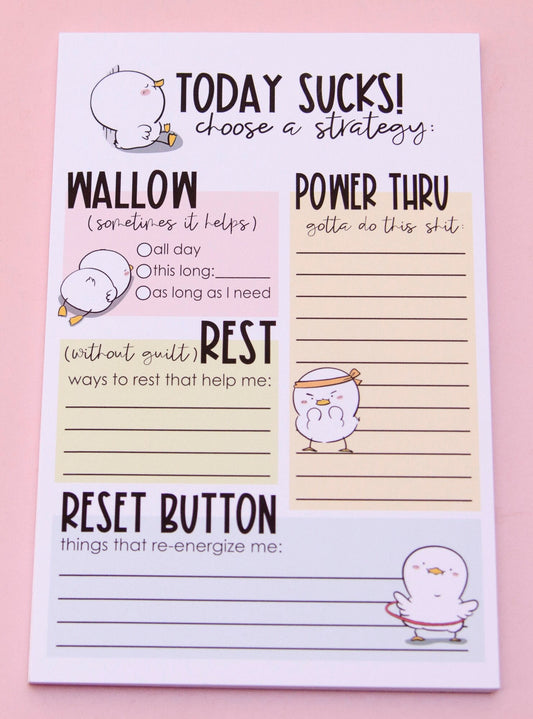 TODAY SUCKS!
choose a strategy:
WALLOW
(sometimes it helps)
all day
this long:
as long as I need
(without guilt) REST
ways to rest that help me:
POWER THRU
gotta do this shit:
RESET BUTTON
things that re-energize me: